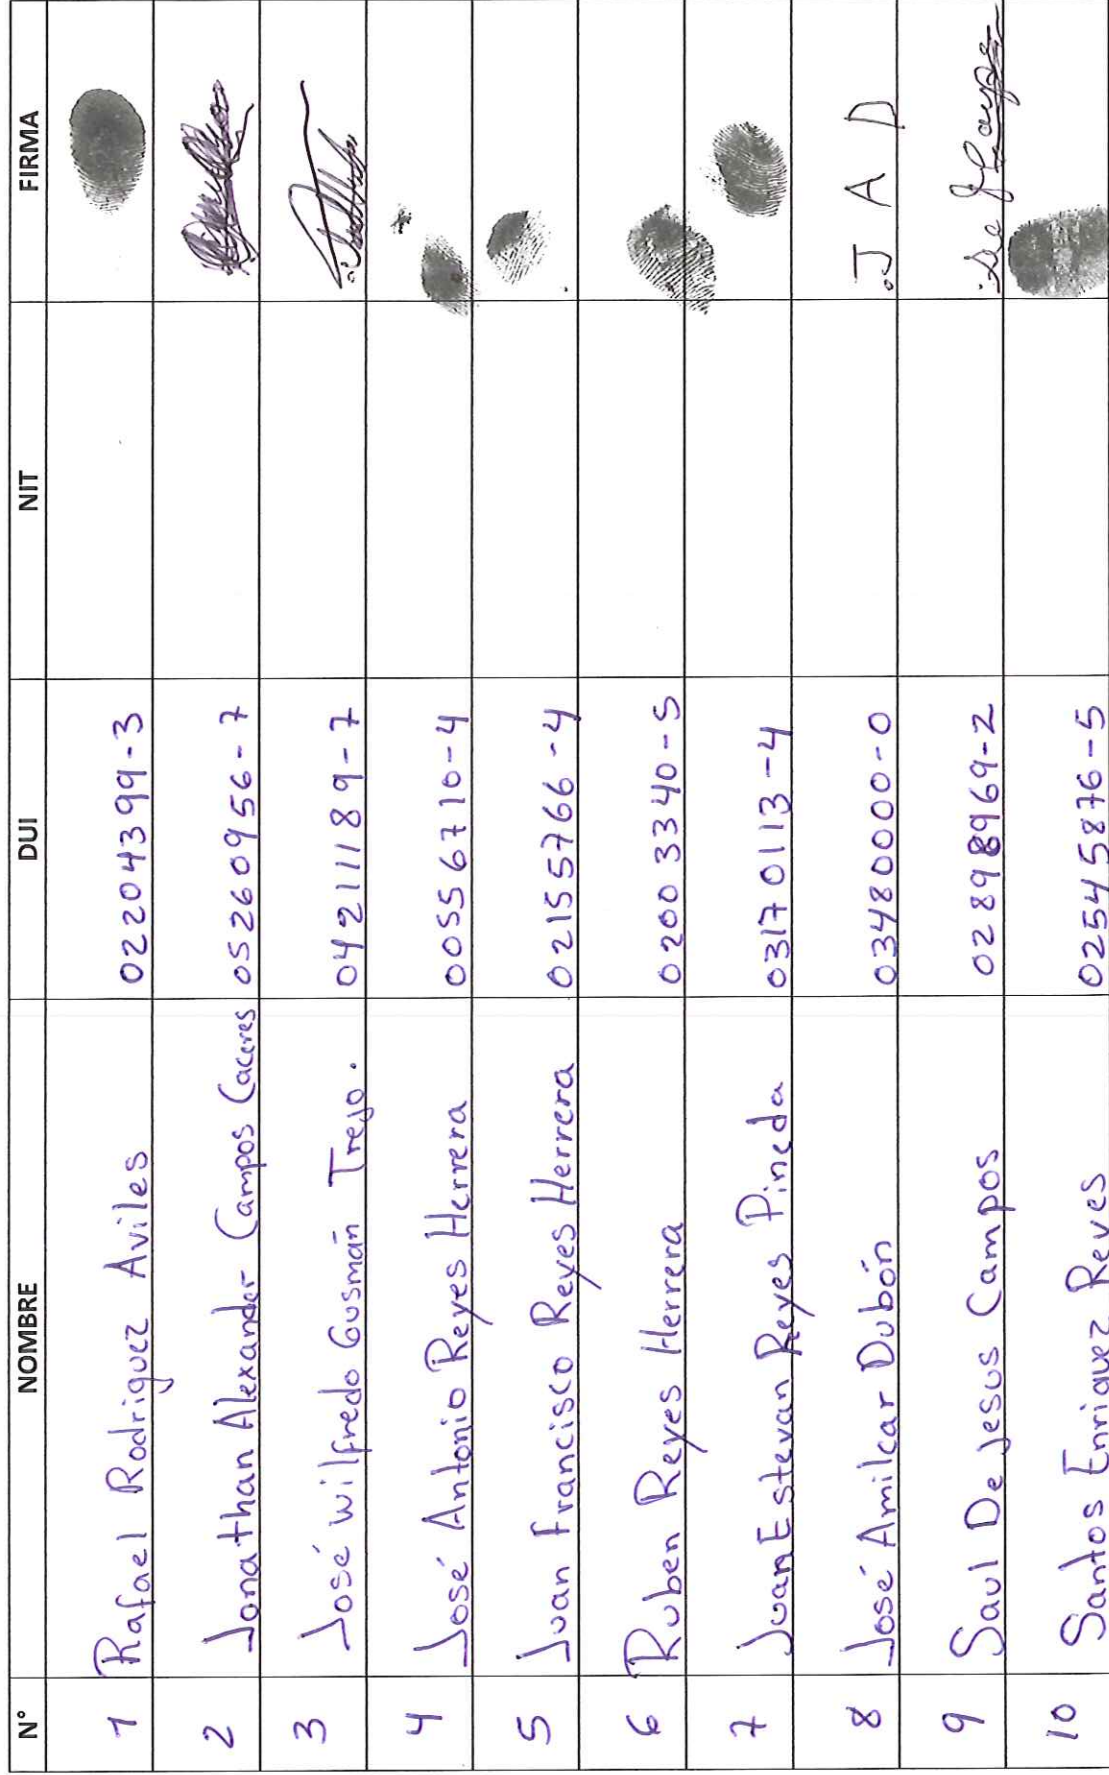 N° NOMBRE DUI NIT FIRMA
1 Rafael Rodriguez Aviles 02204399-3
2 Jonathan Alexander Campos Caceres 05260956-7
3 José wilfredo Gusmán Trejo. 04211189-7
4 José Antonio Reyes Herrera 00556710-4
5 Juan Francisco Reyes Herrera 02155766-4
6 Ruben Reyes Herrera 02003340-5
7 Juan Estevan Reyes Pineda 03170113-4
8 José Amilcar Dubón 03480000-0 J A D
9 Saul De Jesus Campos 02898969-2
10 Santos Enriquez Reyes 02545876-5